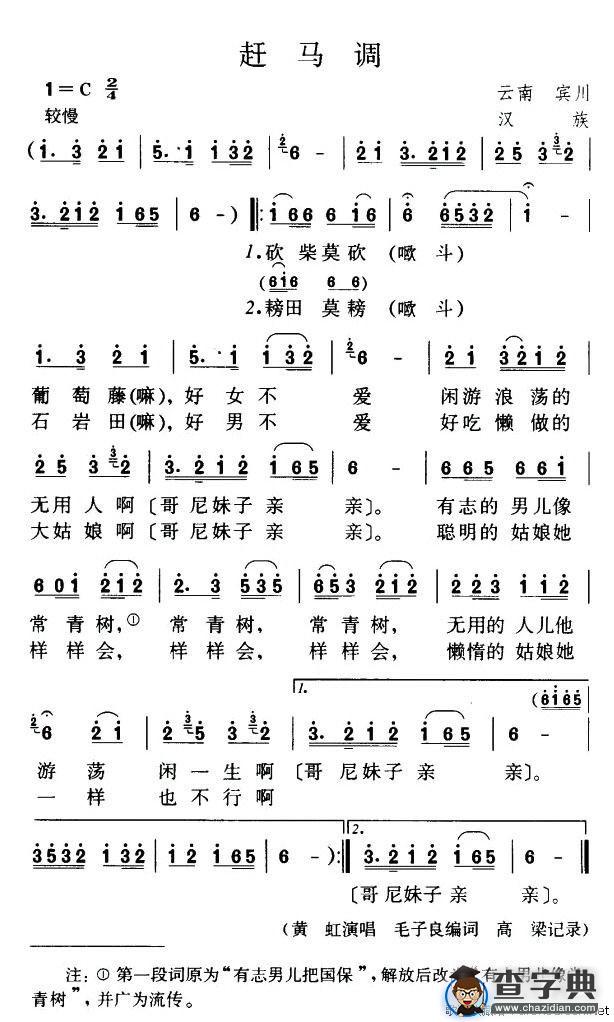 赶马调
1=C 2/4
云南 宾川
较慢
汉 族
(1. 3 21 | 5. 1 132 | 6 - | 21 3.212 | 25 32 |
3.212 165 | 6 -) ‖: 166 616 | 6 6532 | 1 - |
1.砍 柴莫砍 (嗽 斗)
(616 6 16)
2.耪田 莫耪 (嗽 斗)
1. 3 2 1 | 5. 1 132 | 6 - | 21 3212 |
葡 萄 藤(嘛), 好 女 不 爱 闲游 浪荡的
石 岩 田(嘛), 好 男 不 爱 好吃 懒做的
25 32 | 3.212 165 | 6 - | 665 661 |
无用 人 啊 〔哥 尼妹子 亲 亲〕。 有志的 男儿像
大姑 娘 啊 〔哥 尼妹子 亲 亲〕。 聪明的 姑娘她
601 212 | 2. 3 535 | 653 212 | 223 112 |
常 青 树,① 常 青 树, 常 青 树, 无用的 人儿他
样 样 会, 样 样 会, 样 样 会, 懒惰的 姑娘她
1.
(6165
6 21 | 2 5 3 2 | 3. 212 165 | 6 - |
游 荡 闲 一 生 啊 〔哥 尼妹子 亲 亲〕。
一 样 也 不 行 啊
2.
3532 132 | 12 165 | 6 -) :‖ 3. 212 165 | 6 - ‖
〔哥 尼妹子 亲 亲〕。
(黄 虹演唱 毛子良编词 高 梁记录)
注: ① 第一段词原为“有志男儿把国保”, 解放后改
青树”, 并广为流传。
查字典
www.chazidian.com